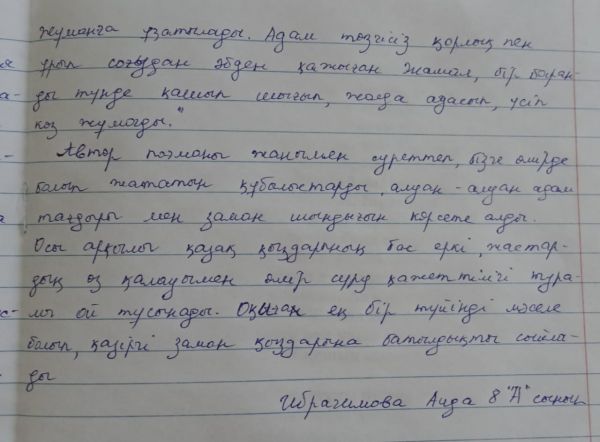 Жуманға ұзатылады. Адам төзгісіз қорлық пен
ұрып соғудан әбден қажыған Жамал, бір боран-
ды түнде қашып шығып, жолда адасып, үсіп
көз жұмады."
Автор поэманы жанымен суреттеп, бізге өмірде
болып жататын құбылыстарды, алуан-алуан адам
тағдыры мен заман шындығын көрсете алды.
Осы арқылы қазақ қыздарының бас еркі, жастар-
дың өз қалауымен өмір сүру қажеттілігі тура-
лы ой тусынады. Оқыған ең бір түйінді мәселе
болып, қазіргі заман қыздарына батылдықты сыйла-
ды
Ибрагимова Аида 8 "А" сынып